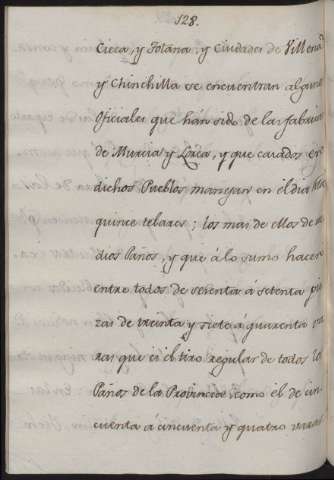 128.
Cieza, y Totana, y Ciudades de Villena
y Chinchilla se encuentran algunos
Oficiales que hán sido de las fabricas
de Murcia y Lorca, y que casados en
dichos Pueblos manejan en el dia
quince telares; los mas de ellos de me
dios Paños, y que á lo sumo hacen
entre todos de sesenta á setenta pie
zas de treinta y siete á quarenta va
ras que es el tiro regular de todos los
Paños de la Provincia, como el de cin
cuenta a cincuenta y quatro varas